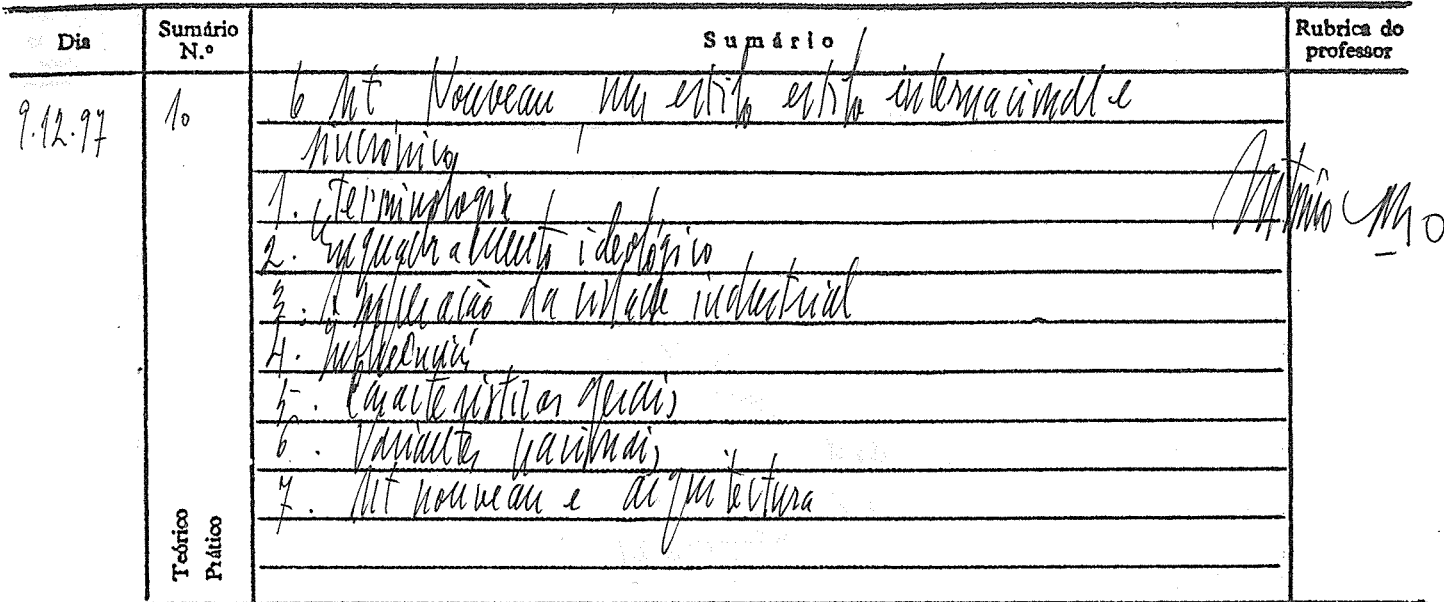 Dia Sumário N.º Sumário Rubrica do professor
9.12.97 10 Art Nouveau um estilo estilo internacional e
sincrónico
1. Terminologia
2. Enquadramento ideológico
3. A da cidade industrial
4. Influências
5. Características gerais
6. Variantes nacionais
7. Art nouveau e arquitectura
Teórico
Prático